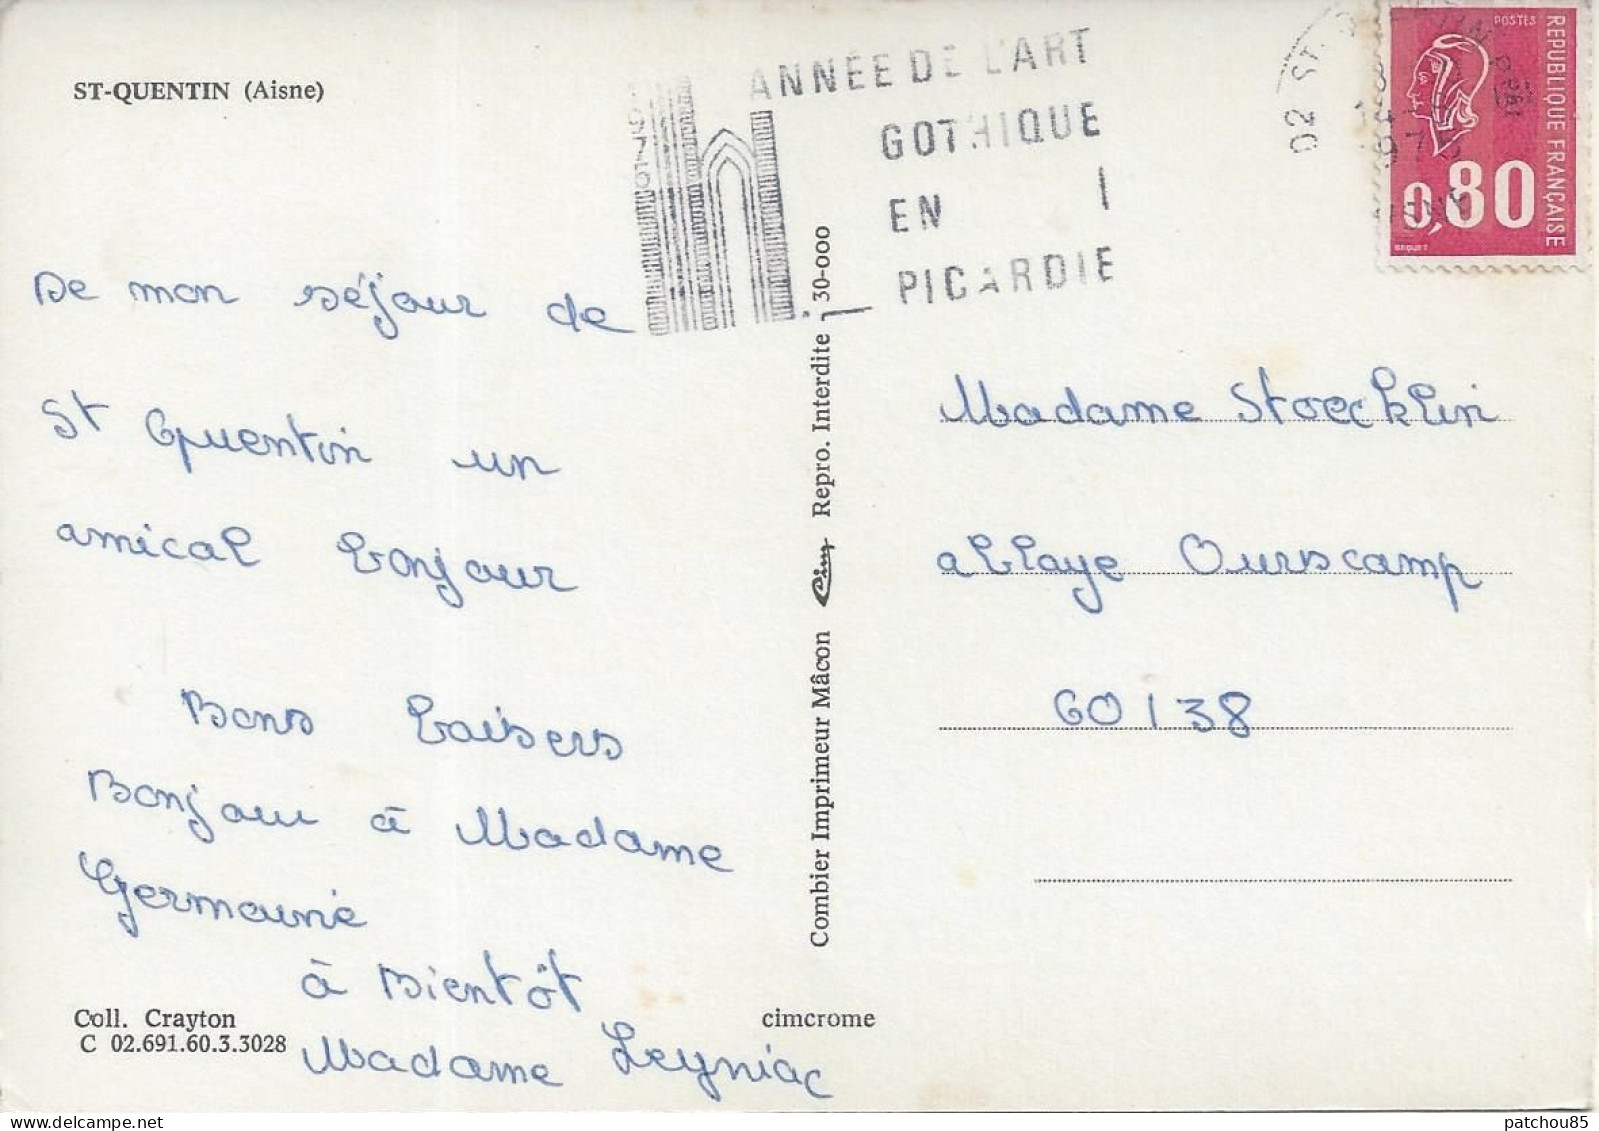 ST-QUENTIN (Aisne)
1979
ANNÉE DE L'ART
GOTHIQUE
EN
PICARDIE
02 ST.
POSTES
REPUBLIQUE FRANÇAISE
0,80
BEQUET
De mon séjour de
St Quentin un
amical bonjour
Bons baisers
Bonjour à Madame
Germaine
à Bientôt
Madame Leyniac
Madame Stoecklin
abbaye Ourscamp
60138
Combier Imprimeur Mâcon Cim Repro. Interdite 30-000
Coll. Crayton
C 02.691.60.3.3028
cimcrome
patchou85